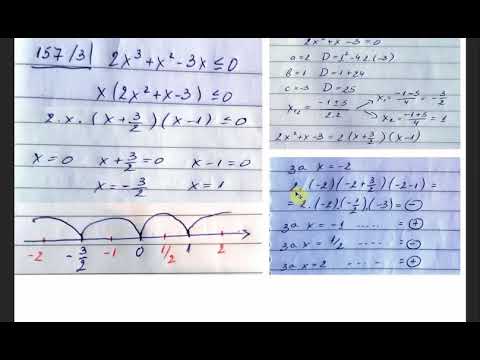 157/3/ 2x³+x²-3x≤0
x(2x²+x-3)≤0
2.x.(x+3/2)(x-1)≤0
x=0 x+3/2=0 x-1=0
x=-3/2 x=1
-2 -3/2 -1 0 1/2 1 2
2x²+x-3=0
a=2 D=1²-4.2.(-3)
b=1 D=1+24
c=-3 D=25
x₁,₂=(-1±5)/2.2 x₁=(-1-5)/4=-3/2
x₂=(-1+5)/4=1
2x²+x-3=2(x+3/2)(x-1)
За x=-2
2.(-2)(-2+3/2)(-2-1)=
=2.(-2).(-1/2).(-3)=⊖
За x=-1 ..... =⊕
За x=1/2 ..... =⊖
За x=2 ..... =⊕